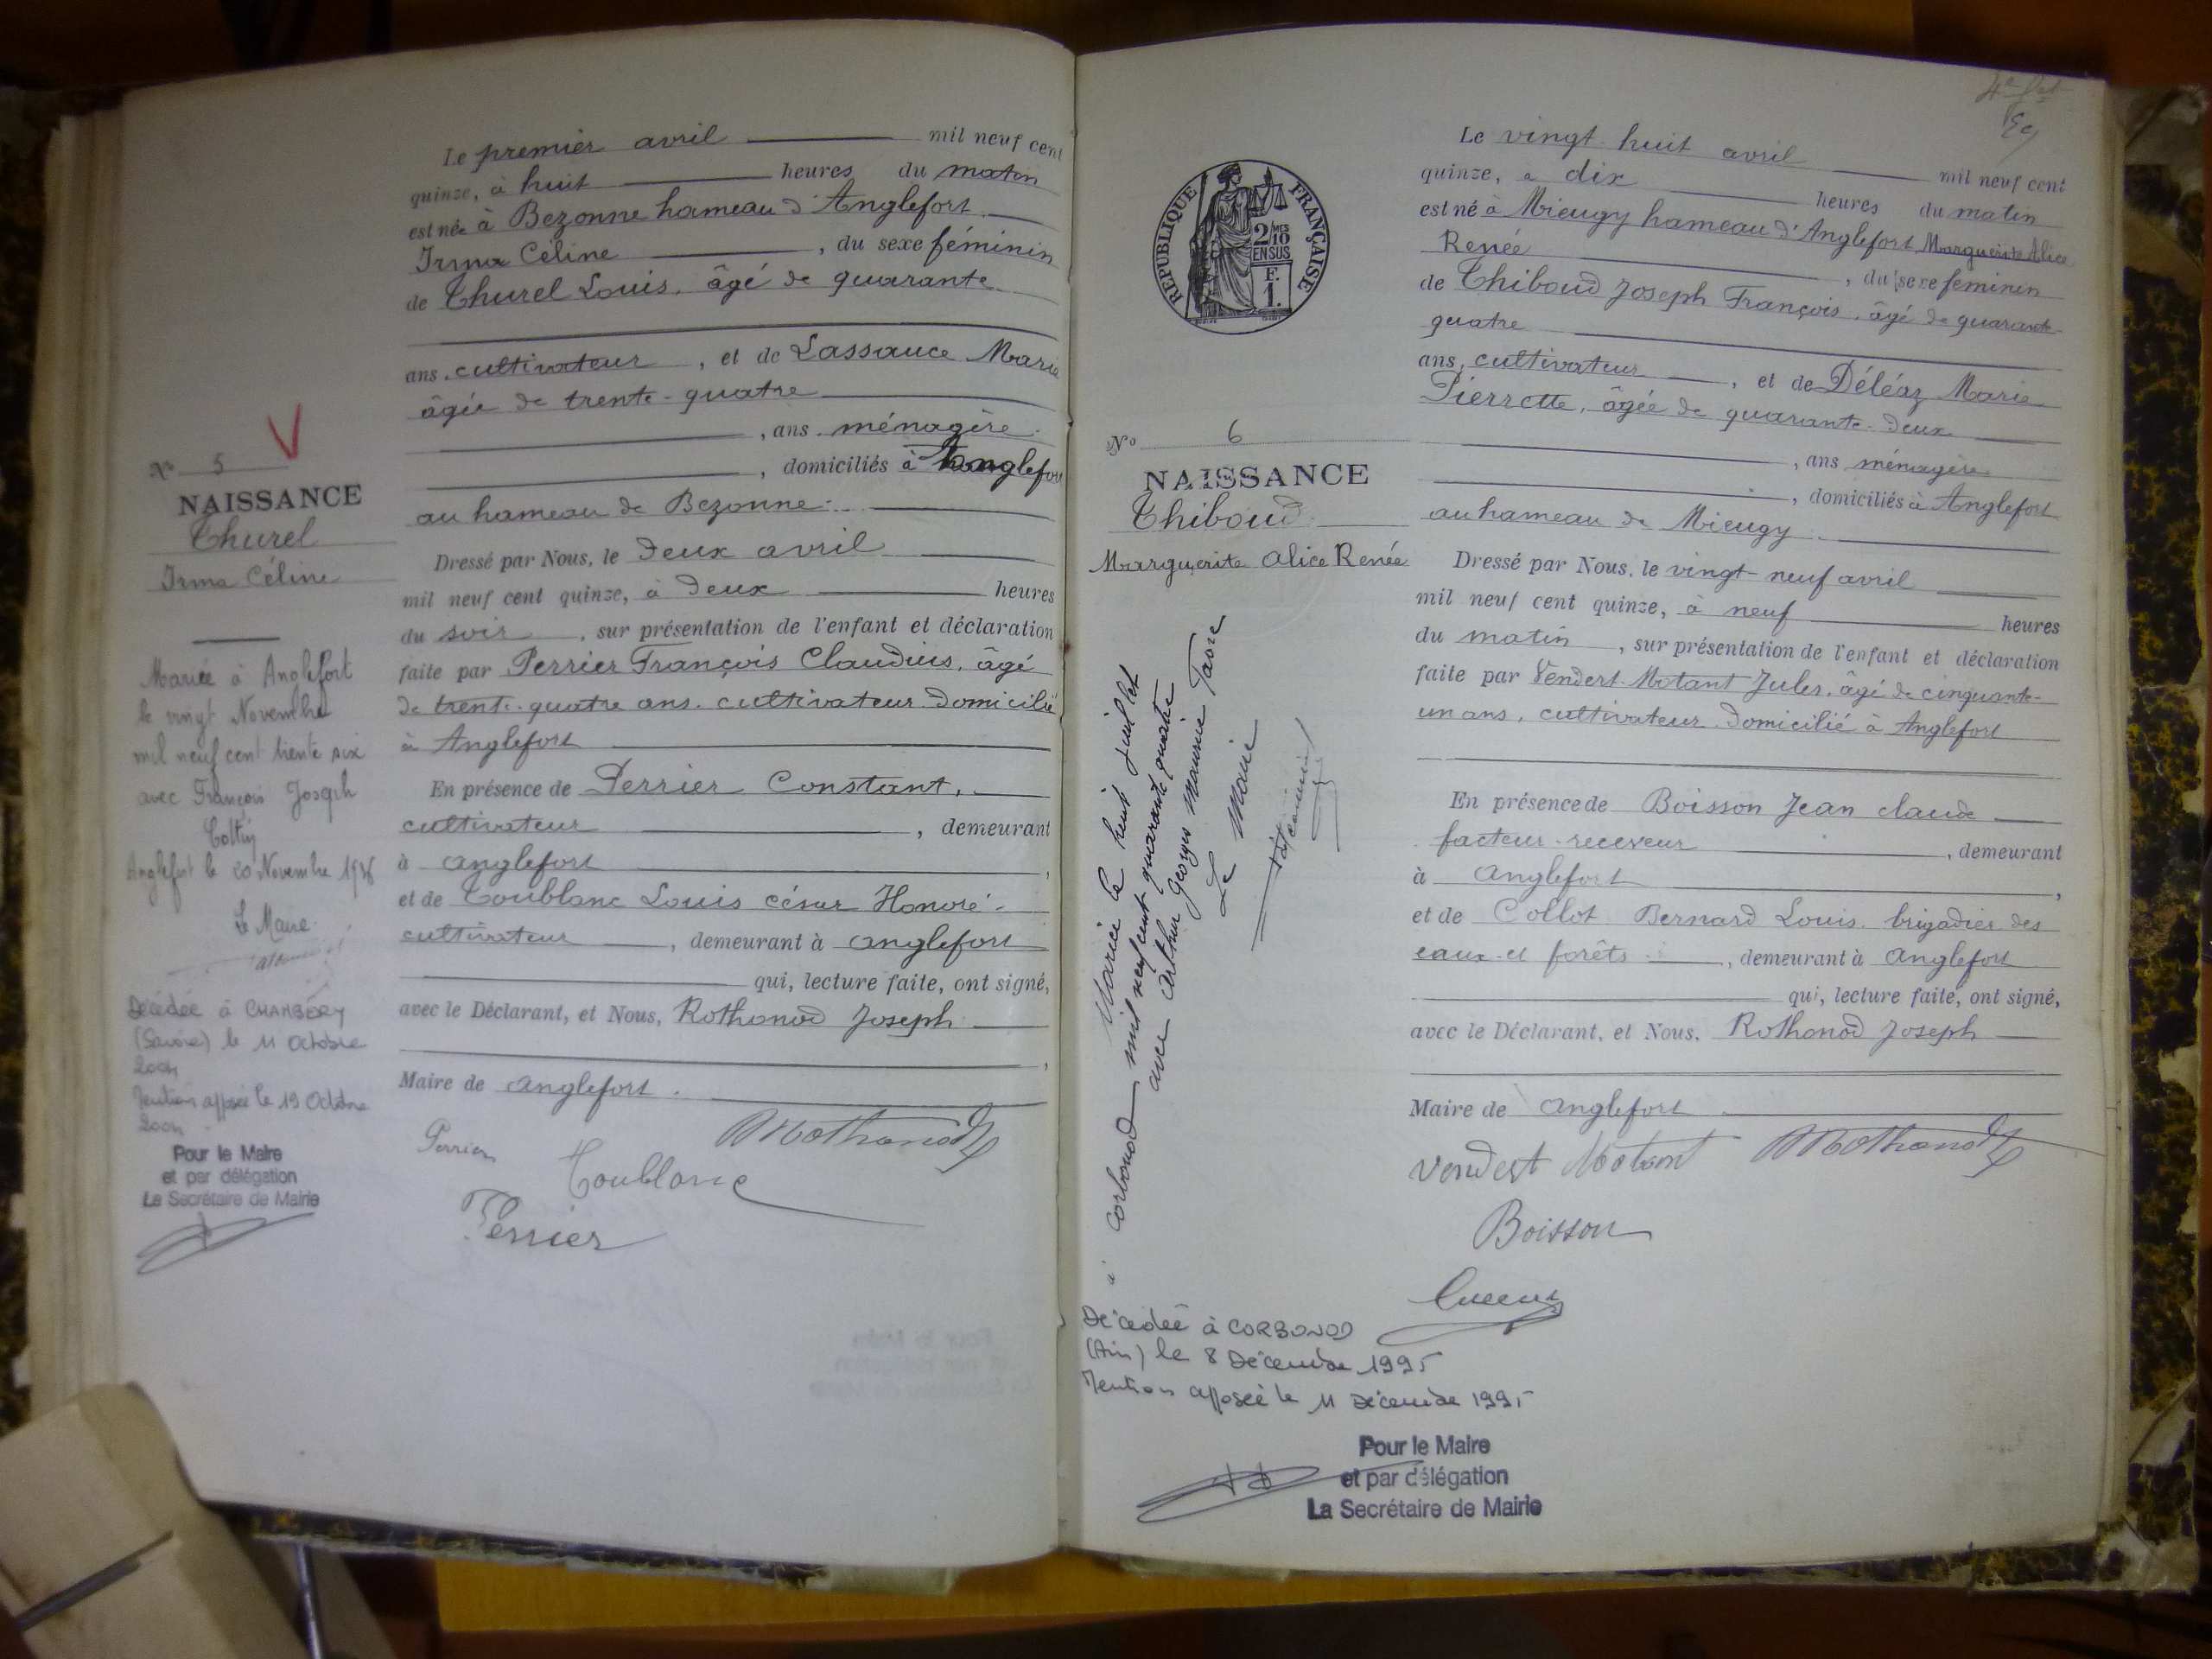 Le premier avril mil neuf cent
quinze, à huit heures du matin
est née à Bezonne hameau d'Anglefort
Irma Céline, du sexe féminin
de Thurel Louis, âgé de quarante
ans, cultivateur, et de Lassauce Marie
âgée de trente-quatre
, ans ménagère
, domiciliés à Anglefort
au hameau de Bezonne
Dressé par Nous, le deux avril
mil neuf cent quinze, à deux heures
du soir, sur présentation de l'enfant et déclaration
faite par Perrier François Claudius, âgé
de trente-quatre ans, cultivateur domicilié
à Anglefort
En présence de Perrier Constant,
cultivateur, demeurant
à Anglefort,
et de Toublanc Louis césar Honoré
cultivateur, demeurant à Anglefort
qui, lecture faite, ont signé,
avec le Déclarant, et Nous, Rothonod Joseph
,
Maire de Anglefort.
Perrier
Toublanc
Rothonod
Perrier
No 5
NAISSANCE
Thurel
Irma Céline
Mariée à Anglefort
le vingt Novembre
mil neuf cent trente six
avec François Joseph
Anglefort le 20 Novembre 1936
Le Maire
Décédée à CHAMBÉRY
(Savoie) le 11 Octobre
2004
Mention apposée le 19 Octobre
2004
Pour le Maire
et par délégation
La Secrétaire de Mairie
RÉPUBLIQUE FRANÇAISE
2/10 MES
EN SUS
F.
1.
No 6
NAISSANCE
Thiboud
Marguerite Alice Renée
Mariée le huit juillet
à Corbonod mil neuf cent quarante quatre
avec Arthur Georges Maurice
Le Maire
Décédée à CORBONOD
(Ain) le 8 Décembre 1995
Mention apposée le 11 Décembre 1995
Pour le Maire
et par délégation
La Secrétaire de Mairie
Le vingt-huit avril mil neuf cent
quinze, à dix heures du matin
est né à Mieugy hameau d'Anglefort Marguerite Alice
Renée, du sexe féminin
de Thiboud Joseph François, âgé de quarante-
quatre
ans, cultivateur, et de Déléaz Marie
Pierrette, âgée de quarante-deux
, ans ménagère
, domiciliés à Anglefort
au hameau de Mieugy
Dressé par Nous, le vingt-neuf avril
mil neuf cent quinze, à neuf heures
du matin, sur présentation de l'enfant et déclaration
faite par Vendert-Motant Jules, âgé de cinquante-
un ans, cultivateur domicilié à Anglefort
En présence de Boisson Jean claude
facteur-receveur, demeurant
à Anglefort,
et de Collot Bernard Louis, brigadier des
eaux et forêts, demeurant à Anglefort
qui, lecture faite, ont signé,
avec le Déclarant, et Nous, Rothonod Joseph
Maire de Anglefort
Vendert Motant
Rothonod
Boisson